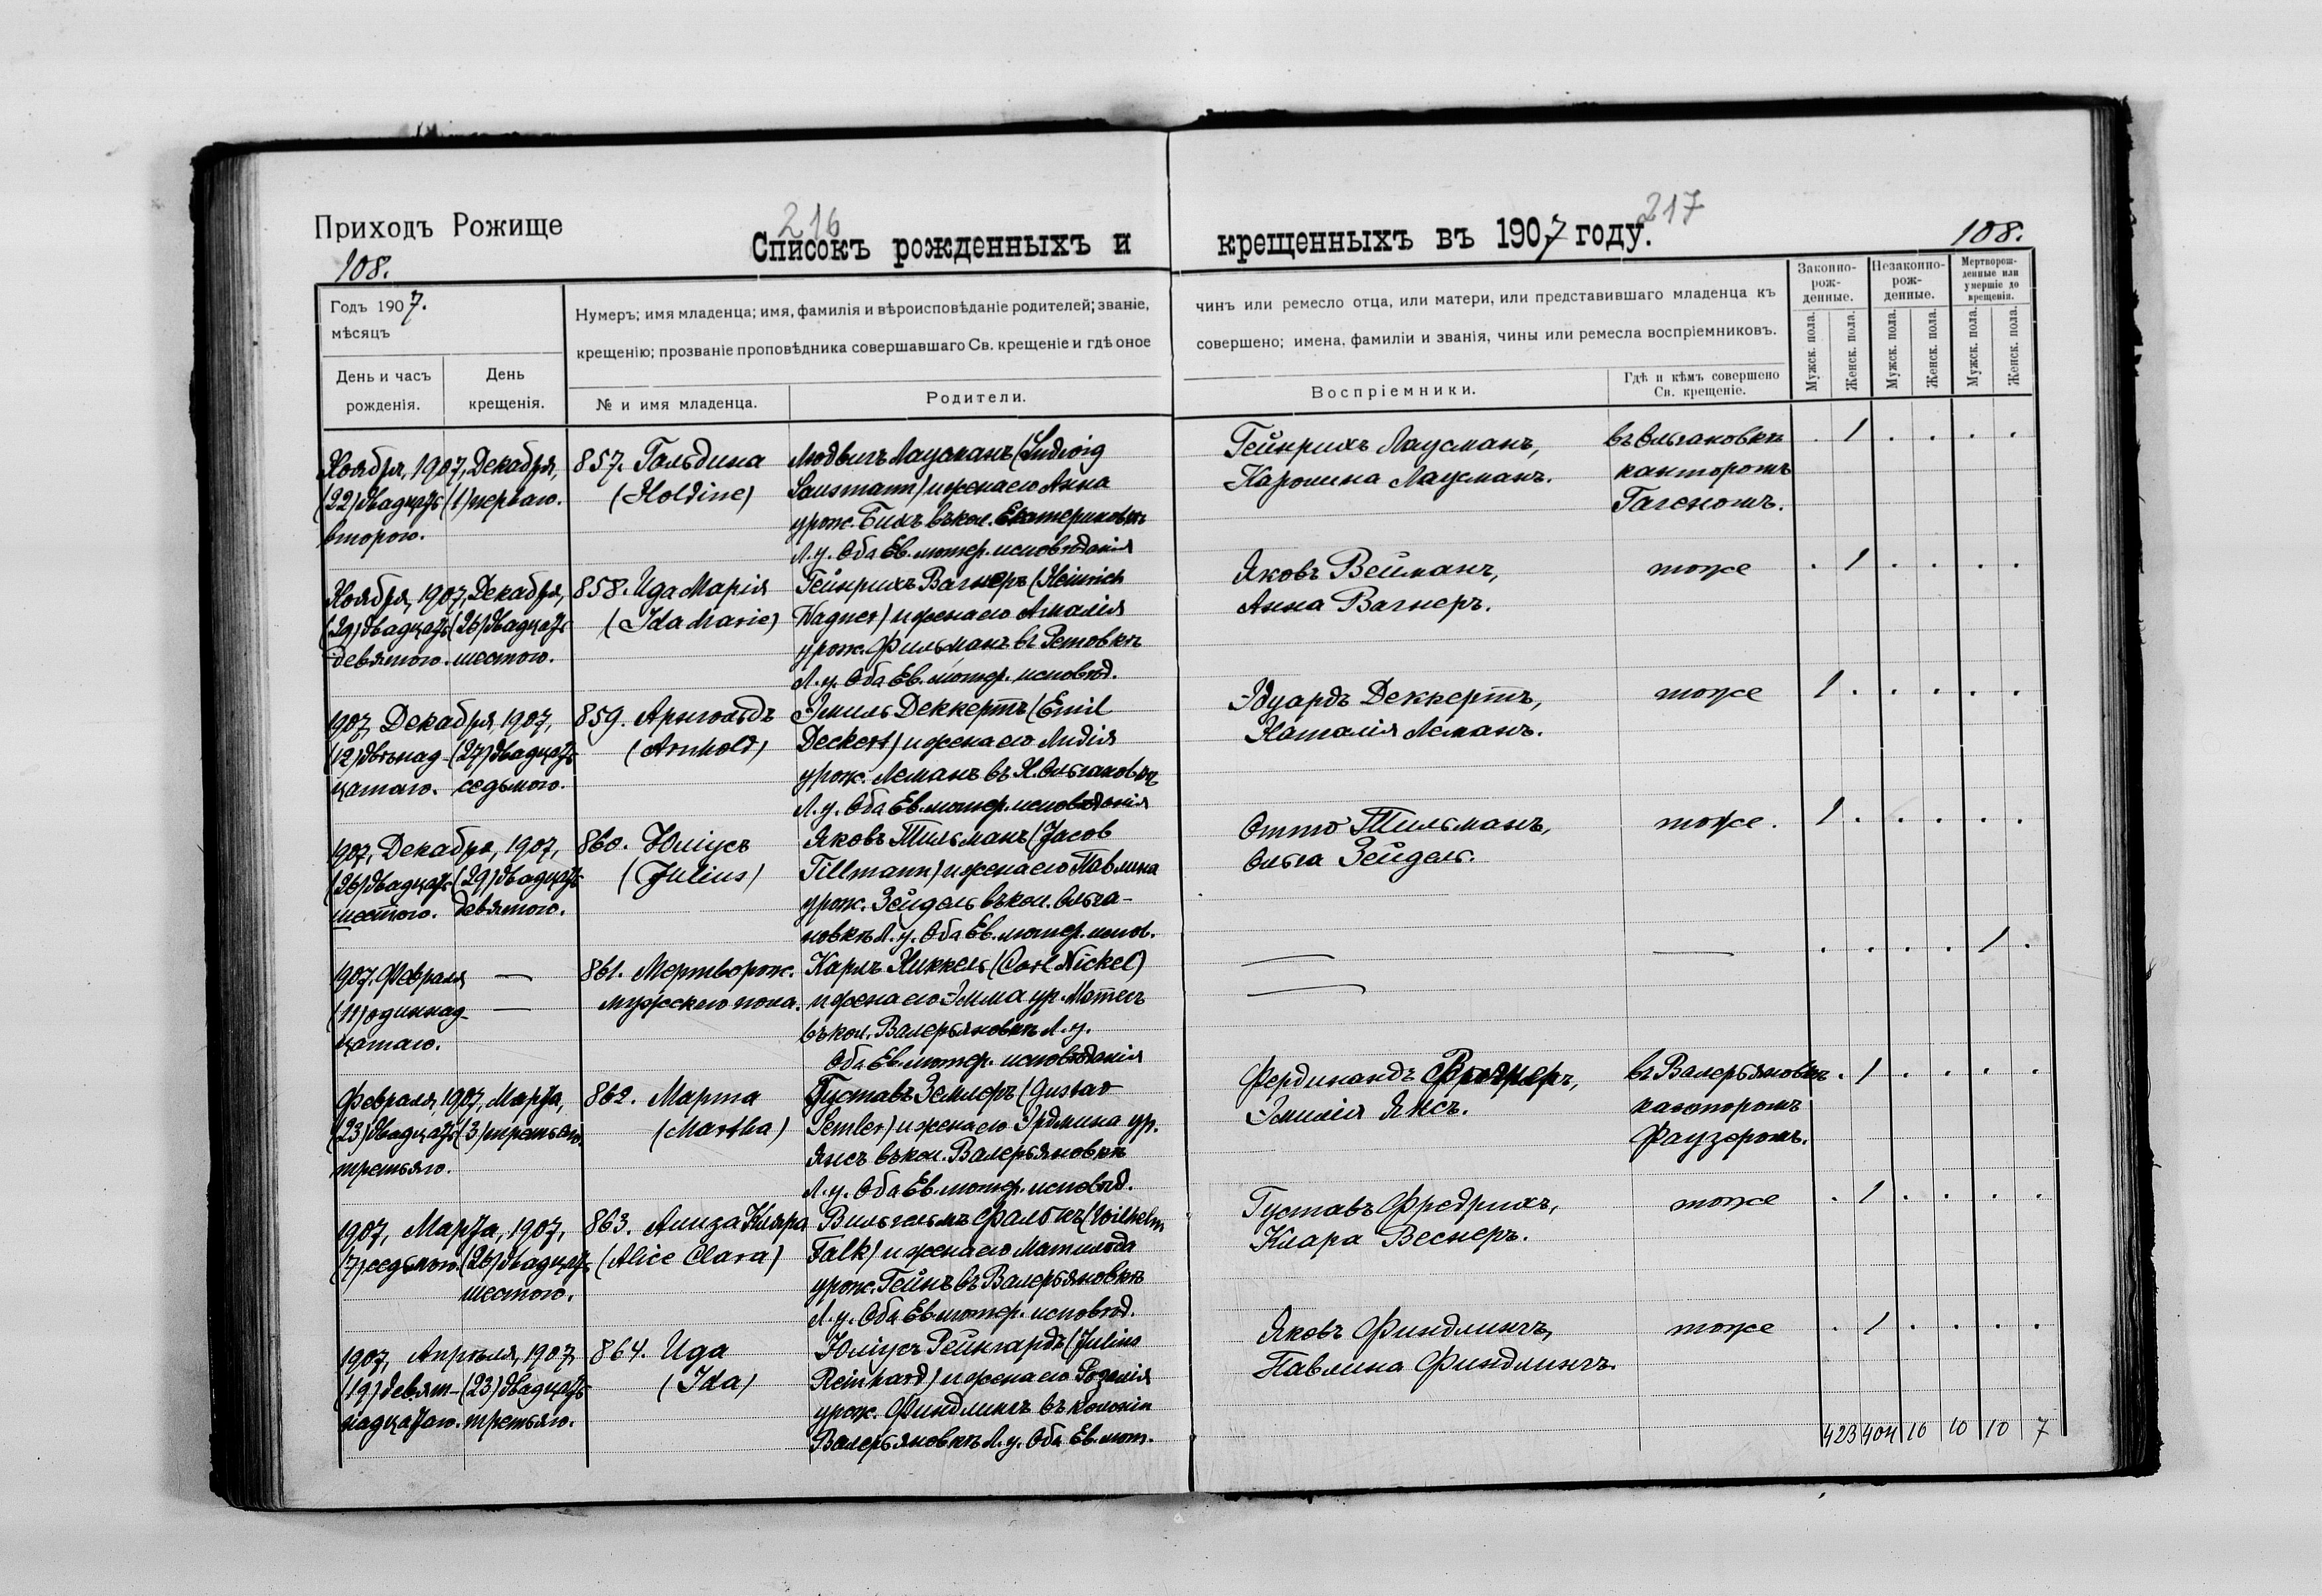 Приходъ Рожище
216
217
Списокъ рожденныхъ и крещенныхъ въ 1907 году.
108.
108.
Годъ 1907.
мѣсяцъ
День и часъ рожденія.
День крещенія.
Нумеръ; имя младенца; имя, фамилія и вѣроисповѣданіе родителей; званіе,
крещенію; прозваніе проповѣдника совершавшаго Св. крещеніе и гдѣ оное
№ и имя младенца.
Родители.
чинъ или ремесло отца, или матери, или представившаго младенца къ
совершено; имена, фамиліи и званія, чины или ремесла воспріемниковъ.
Воспріемники.
Гдѣ и кѣмъ совершено
Св. крещеніе.
Законно-
рож-
денные.
Незаконно-
рож-
денные.
Мертворож-
денные или
умершіе до
крещенія.
Мужск. пола.
Женск. пола.
Мужск. пола.
Женск. пола.
Мужск. пола.
Женск. пола.
Ноября, 1907, Декабря,
(22) двадцать (1) перваго.
второго.
857. Гольдина
(Holdine)
Людвигъ Лаусманъ (Ludwig
Lausmann) и жена его Анна
урож. въ кол. Екатериновкѣ
Л. у. Оба Ев. лютер. исповѣданія
Гейнрихъ Лаусманъ,
Каролина Лаусманъ.
въ Ольгановкѣ
канторомъ
1
Ноября, 1907, Декабря,
(29) двадцать (26) двадцать
девятого. шестого.
858. Ида Марія
(Ida Marie)
Гейнрихъ Вагнеръ (Heinrich
Wagner) и жена его Амалія
урож. Фильманъ въ
Л. у. Оба Ев. лютер. исповѣд.
Яковъ Вейманъ,
Анна Вагнеръ.
тоже
1
1907, Декабря, 1907,
(12) двѣнад- (27) двадцать
цатаго. седьмого.
859. Арнгольдъ
(Arnhold)
Эмиль Деккертъ (Emil
Deckert) и жена его Лидія
урож. Леманъ въ Н. Ольгановкѣ
Л. у. Оба Ев. лютер. исповѣданія
Эдуардъ Деккертъ,
Наталія Леманъ.
тоже
1
1907, Декабря, 1907,
(26) двадцать (29) двадцать
шестого. девятого.
860. Юліусъ
(Julius)
Яковъ Тильманъ (Jacob
Tillmann) и жена его Павлина
урож. Зейдель въ кол. Ольга-
новкѣ Л. у. Оба Ев. лютер. испов.
Отто Тильманъ,
Ольга Зейдель.
тоже.
1
1907. Февраля —
(11) одиннад- —
цатаго.
861. Мертворож.
мужского пола.
Карлъ Никкель (Carl Nickel)
и жена его Эмма ур.
въ кол. Валерьяновкѣ Л. у.
Оба Ев. лютер. исповѣданія
1
Февраля, 1907, Марта,
(23) двадцать (3) третьяго.
третьяго.
862. Марта
(Martha)
Густавъ Землеръ (Gustav
Semler) и жена его Эрдмина ур.
Янсъ въ кол. Валерьяновкѣ
Л. у. Оба Ев. лютер. исповѣд.
Фердинандъ
Эмилія Янсъ.
въ Валерьяновкѣ
канторомъ
Фаузеромъ.
1
1907, Марта, 1907,
(7) седьмого. (26) двадцать
шестого.
863. Ализа Клара
(Alice Clara)
Вильгельмъ Фалькъ (Wilhelm
Falk) и жена его Матильда
урож. Гейнъ въ Валерьяновкѣ
Л. у. Оба Ев. лютер. исповѣд.
Густавъ Фредрихъ,
Клара Веснеръ.
тоже
1
1907, Апрѣля, 1907,
(19) девят- (23) двадцать
надцатаго. третьяго.
864. Ида
(Ida)
Юліусъ Рейнгардъ (Julius
Reinhard) и жена его Розалія
урож. Финдлингъ въ колоніи
Валерьяновкѣ Л. у. Оба Ев. лют.
Яковъ Финдлингъ,
Павлина Финдлингъ.
тоже
1
423 404 10 10 10 7